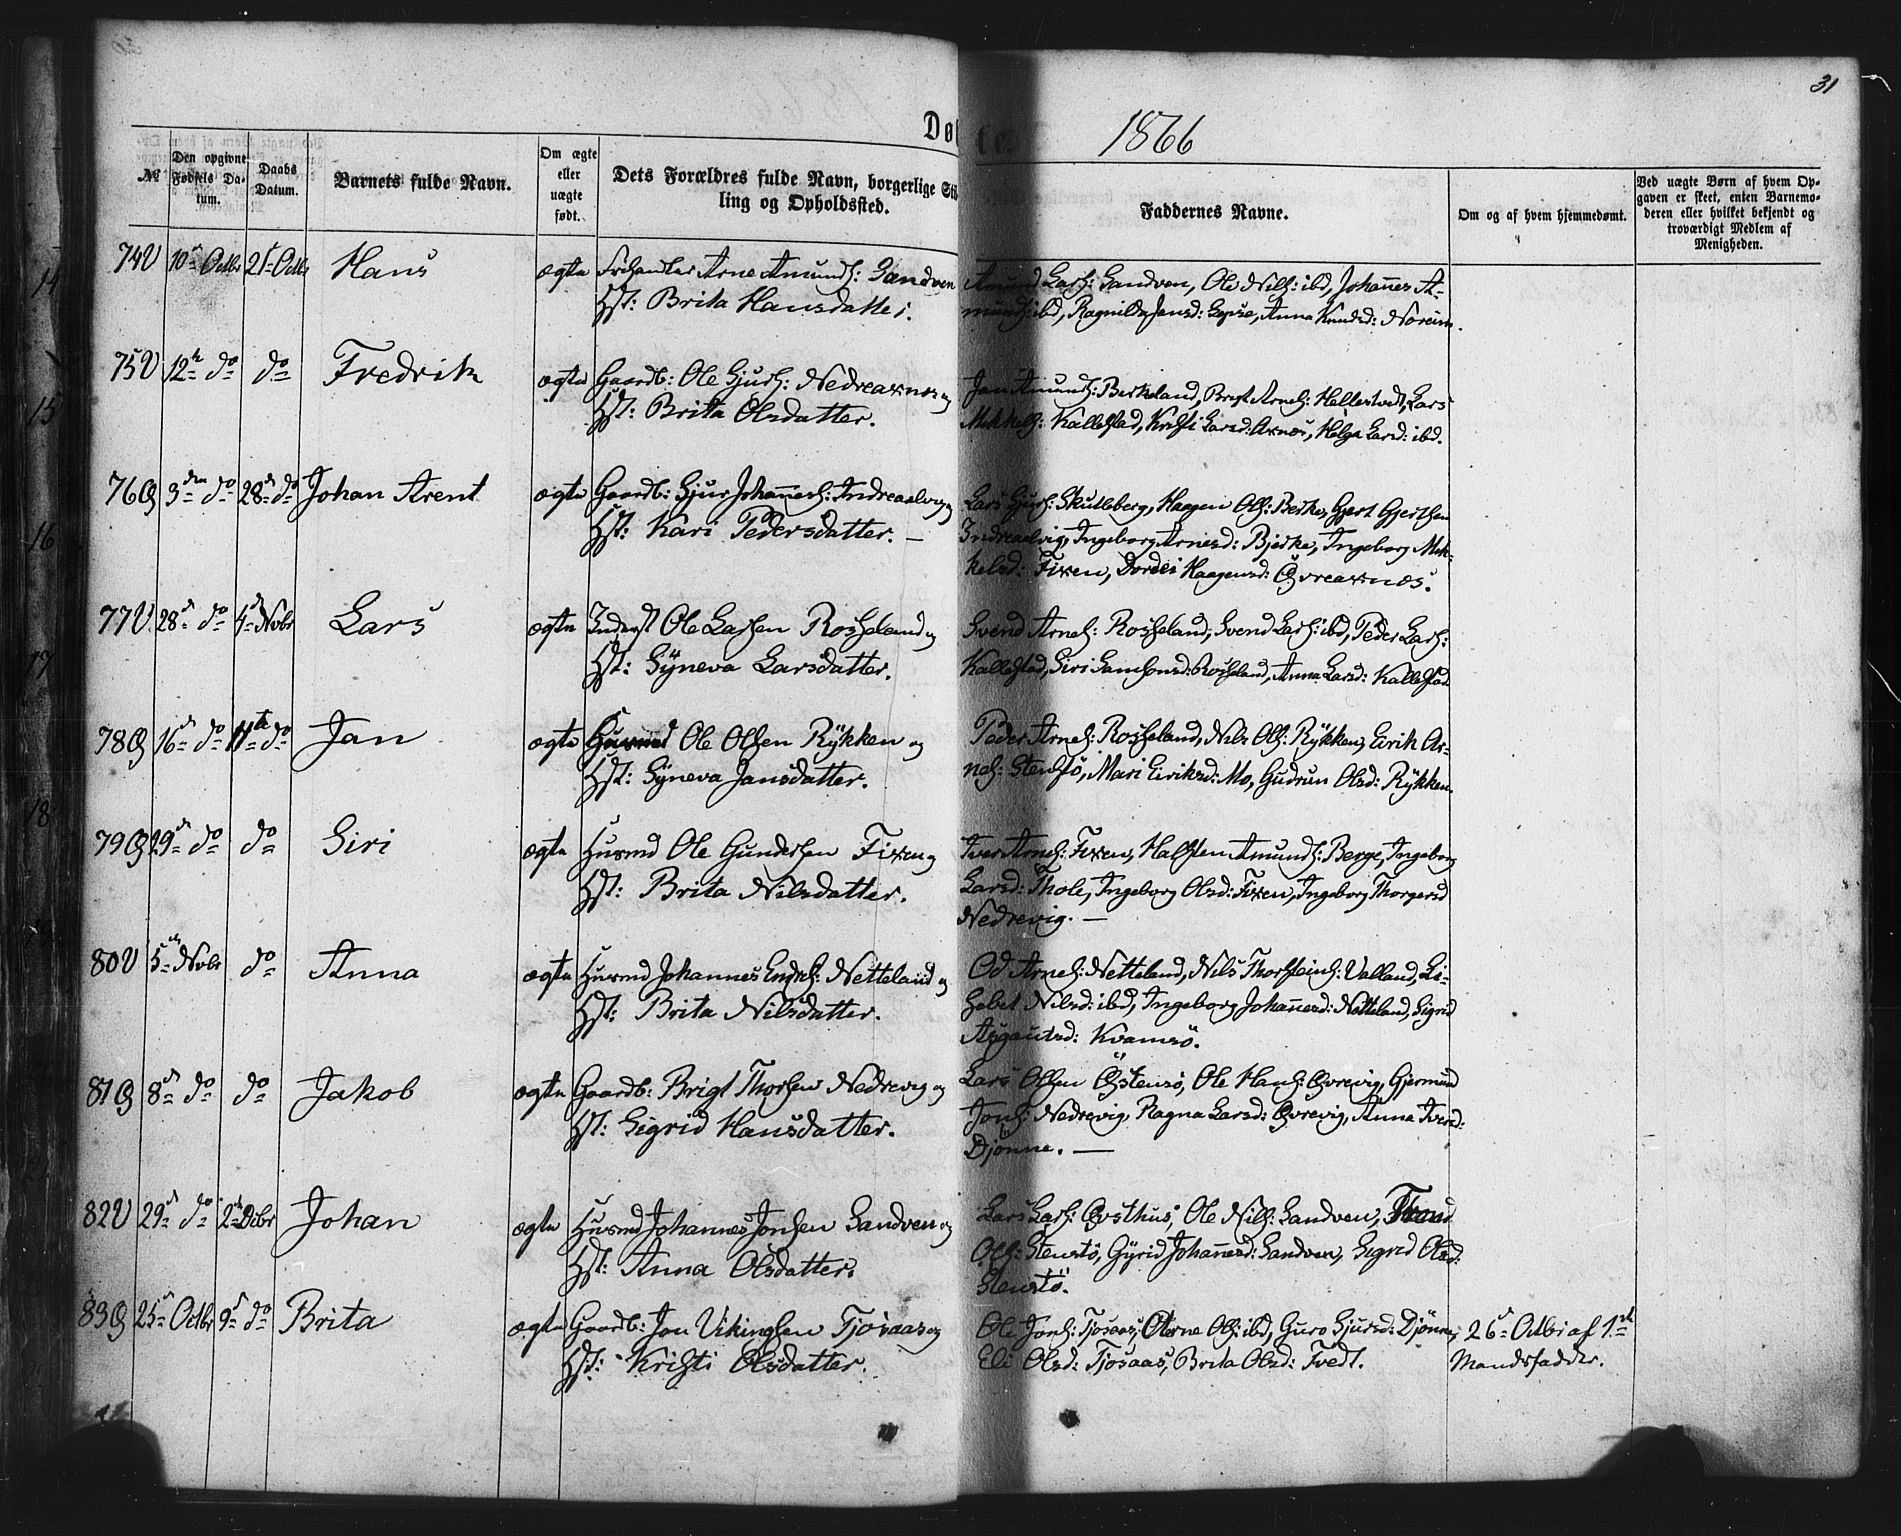 31
Døbte. 1866
№
Den opgivne Fødsels Datum.
Daabs Datum.
Barnets fulde Navn.
Om ægte eller uægte født.
Dets Forældres fulde Navn, borgerlige Stilling og Opholdssted.
Faddernes Navne.
Om og af hvem hjemmedømt.
Ved uægte Børn af hvem Opgaven er skeet, enten Barnemoderen eller hvilket bekjendt og troværdigt Medlem af Menigheden.
74 10 Octbr 21 Octbr Hans ægte Arne Amunds: Sandven
Hst: Brita Hansdatter.
Amund Lars: Sandven, Ole Nils: ibd, Johannes A-
munds: ibd, Ragnilda Jensd: Lepsø, Anna Knudsd: Noreim.
75 12 do do Fredrik ægte Gaardb: Ole Sjurs: Nedreaxnes og
Hst: Brita Olsdatter.
Jan Amunds: Berkeland, Brigt Arnes: Hellestvedt, Lars
Mikkels: Kallestad, Kristi Larsd: Axnæs, Helga Larsd: ibd.
76 3 do 28 do Johan Arent ægte Gaardb: Sjur Johannes: Indreaalvig og
Hst: Kari Pedersdatter. —
Lars Sjurs: Skutleberg, Haagen Ols: Berke, Gjert Gjertsen
Indreaalvig, Ingeborg Arnesd: Bjerke, Ingeborg Mik-
kelsd: Fixen, Dordei Haagensd: Øvreaxnæs.
77 28 do 4 Nvbr Lars ægte Inderst Ole Larsen Rosseland og
Hst: Syneva Larsdatter.
Svend Arnes: Rosseland, Svend Lars: ibd, Peder Lars:
Kallestad, Siri Samsonsd: Rosseland, Anna Larsd: Kallestad
78 16 do 11te do Jan ægte Husmd Ole Olsen Rykken og
Hst: Syneva Jansdatter.
Peder Arnes: Rosseland, Nils Ols: Rykken, Eirik Ar-
nes: Stenstø, Mari Eiriksd: Mo, Gudrun Olsd: Rykken.
79 29 do do Siri ægte Husmd Ole Gundersen Fixen og
Hst: Brita Nilsdatter.
Iver Arnes: Fixen, Halsten Amunds: Berge, Ingeborg
Larsd: Thole, Ingeborg Olsd: Fixen, Ingeborg Thorgersd
Nedrevig. —
80 5 Nvbr do Anna ægte Husmd Johannes Endres: Netteland og
Hst: Brita Nilsdatter.
Od Arnes: Netteland, Nils Thorsteins: Valland, Li-
sebet Nilsd: ibd, Ingeborg Johannesd: Netteland, Sigrid
Asgautsd: Kvamsø.
81 8 do do Jakob ægte Gaardb: Brigt Thorsen Nedrevig og
Hst: Sigrid Hansdatter.
Lars Olsen Østensø, Ole Hans: Øvrevig, Gjermund
Jons: Nedrevig, Ragna Larsd: Øvrevig, Anna Iversd:
Djønne. —
82 29 do 2 Dcbr Johan ægte Husmd Johannes Jonsen Sandven og
Hst: Anna Olsdatter.
Lars Lars: Østhus, Ole Nils: Sandven, Trond
Ols: Stenstø, Gyrid Johannesd: Sandven, Sigrid Olsd:
Stenstø.
83 25 Octbr 9 do Brita ægte Gaardb: Jon Vikingsen Tjosaas og
Hst: Kristi Olsdatter.
Ole Jons: Tjosaas, Arne Ols: ibd, Guro Sjursd: Djønne,
Eli Olsd: Tjosaas, Brita Olsd: Tvedt.
26 Octbr af 1ste
Mandsfadder.